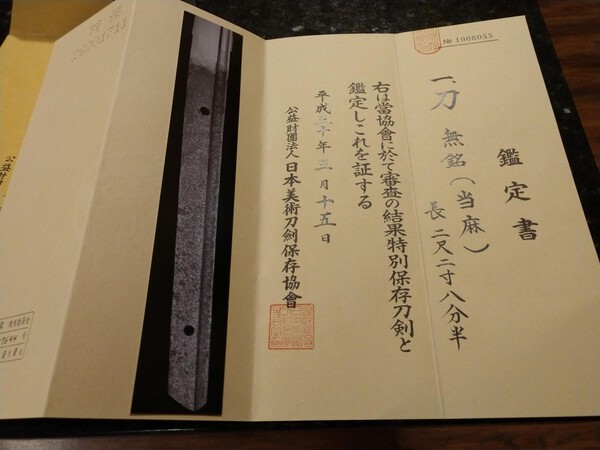 № 1008055
鑑定書
一、刀 無銘(当麻)
長 二尺二寸八分半
右は當協會に於て審査の結果特別保存刀剣と
鑑定しこれを証する
平成三十年三月十五日
公益財團法人日本美術刀劍保存協會